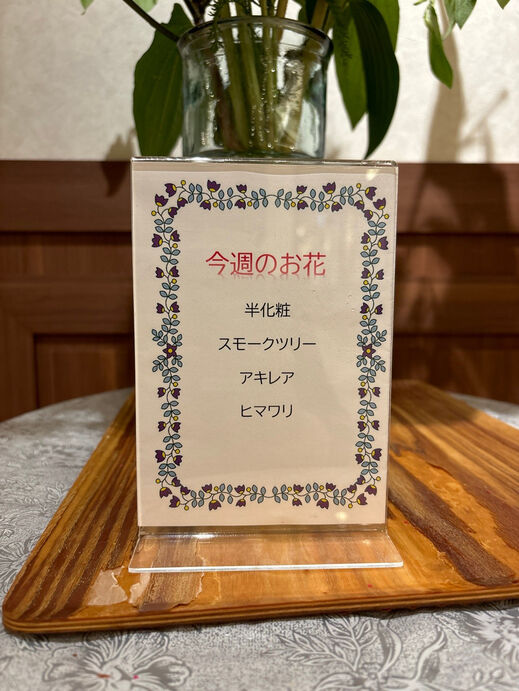 今週のお花
半化粧
スモークツリー
アキレア
ヒマワリ